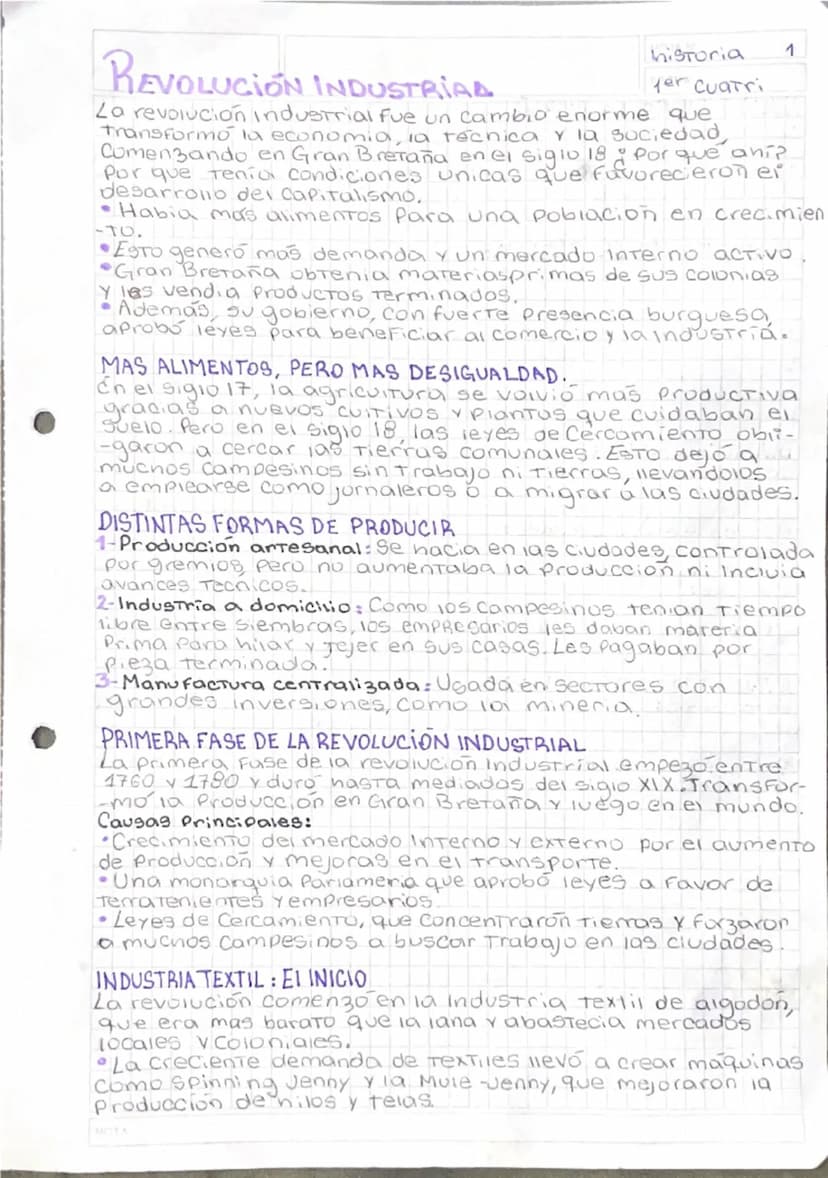 historia 1
1er cuatri
REVOLUCIÓN INDUSTRIAL
La revolución industrial fue un cambio enorme que
transformó la economía, la técnica y la sociedad,
Comenzando en Gran Bretaña en el siglo 18 ¿Por qué ahí?
Por que tenía condiciones unicas que favorecieron el
desarrollo del capitalismo.
• Había más alimentos para una población en crecimien
-to.
• Esto generó más demanda y un mercado interno activo.
• Gran Bretaña obtenia materiasprimas de sus colonias
y les vendia productos terminados.
• Además, su gobierno, con fuerte presencia burguesa,
aprobó leyes para beneficiar al comercio y la industria.
MAS ALIMENTOS, PERO MAS DESIGUALDAD.
En el siglo 17, la agricultura se volvió más productiva
gracias a nuevos cultivos y plantas que cuidaban el
suelo. Pero en el siglo 18, las leyes de Cercamiento obli-
-garon a cercar las tierras comunales. Esto dejó a
muchos campesinos sin trabajo ni tierras, llevandolos
a emplearse como jornaleros o a migrar a las ciudades.
DISTINTAS FORMAS DE PRODUCIR
1-Producción artesanal: Se hacia en las ciudades, controlada
por gremios, pero no aumentaba la producción ni incluia
avances tecnicos.
2-Industria a domicilio: Como los campesinos tenian tiempo
libre entre siembras, los empresarios les daban materia
prima para hilar y tejer en sus casas. Les pagaban por
pieza terminada.
3-Manufactura centralizada: Usada en sectores con
grandes inversiones, como la mineria.
PRIMERA FASE DE LA REVOLUCIÓN INDUSTRIAL
La primera fase de la revolución industrial empezó entre
1760 y 1780 y duró hasta mediados del siglo XIX. Transfor-
-mó la producción en Gran Bretaña y luego en el mundo.
Causas principales:
• Crecimiento del mercado interno y externo por el aumento
de producción y mejoras en el transporte.
• Una monarquia parlameria que aprobó leyes a favor de
terratenientes y empresarios.
• Leyes de Cercamiento, que concentraron tierras y forzaron
a muchos campesinos a buscar trabajo en las ciudades.
INDUSTRIA TEXTIL: El INICIO
La revolución comenzó en la industria textil de algodón,
que era mas barato que la lana y abastecia mercados
locales y coloniales.
• La creciente demanda de textiles llevó a crear máquinas
como Spinning Jenny y la Mule-Jenny, que mejoraron la
producción de hilos y telas.